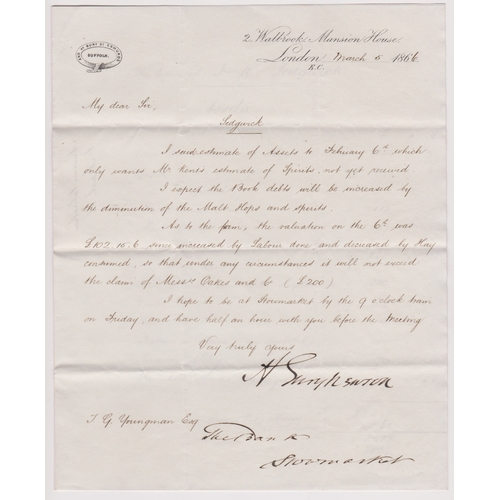 SUFFOLK.
2 Walbrook, Mansion House,
London March 6 1866
E.C.
My dear Sir,
Sedgwick
I send estimate of Assets to February 6th which
only wants Mr estimate of Spirits, not yet received
I expect the Book debts will be increased by
the diminution of the Malt Hops and spirits.
As to the farm, the valuation on the 6th was
£102.15.6 since increased by Labour done and decreased by Hay
consumed, so that under any circumstances it will not exceed
the claim of Messrs Oakes and Co (£200)
I hope to be at Stowmarket by the 9 o'clock train
on Friday, and have half an hour with you before the Meeting
Very truly yours
J. G. Youngman Esq
The Bank
Stowmarket